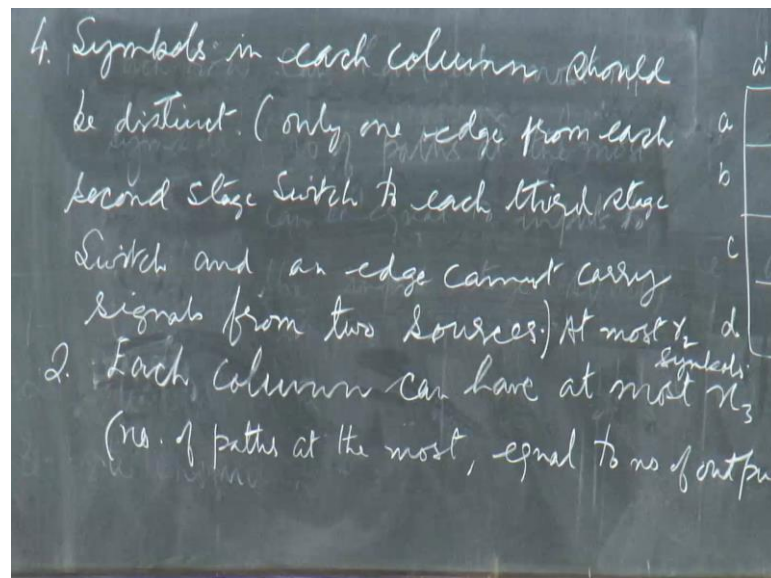 4. Symbols in each column should
be distinct. (only one edge from each
second stage switch to each third stage
switch and an edge cannot carry
signals from two sources.) At most r₂
symbols.
2. Each column can have at most n₃
(no. of paths at the most, equal to no of outpu
a'
a
b
c
d